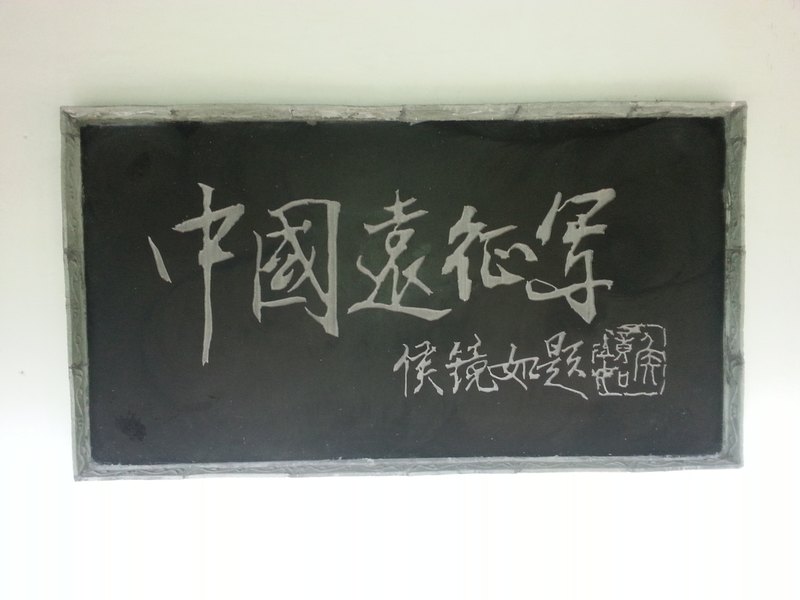 中國遠征军
侯镜如题